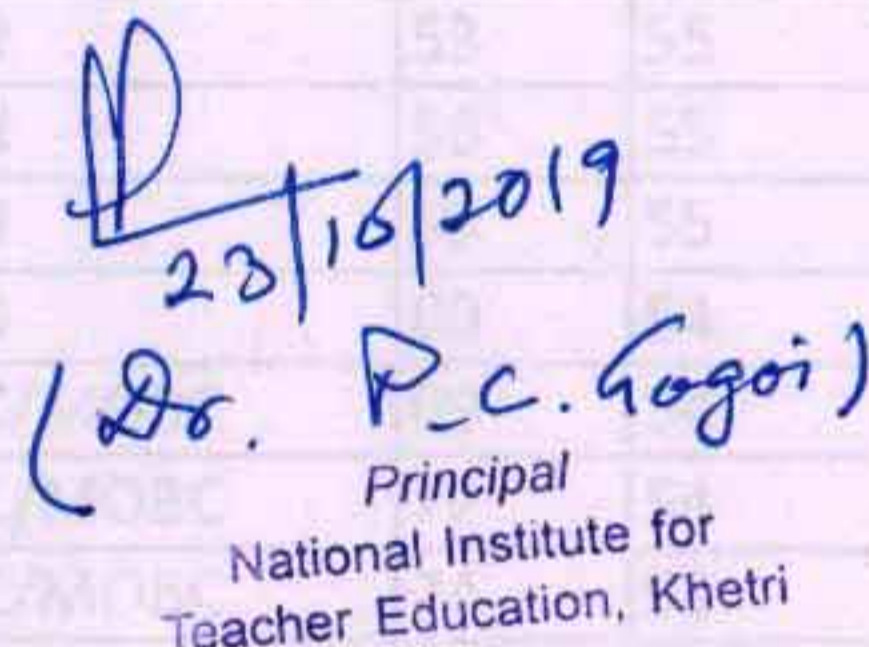 23/10/2019
(Dr. P.C. Gogoi)
Principal
National Institute for
Teacher Education, Khetri